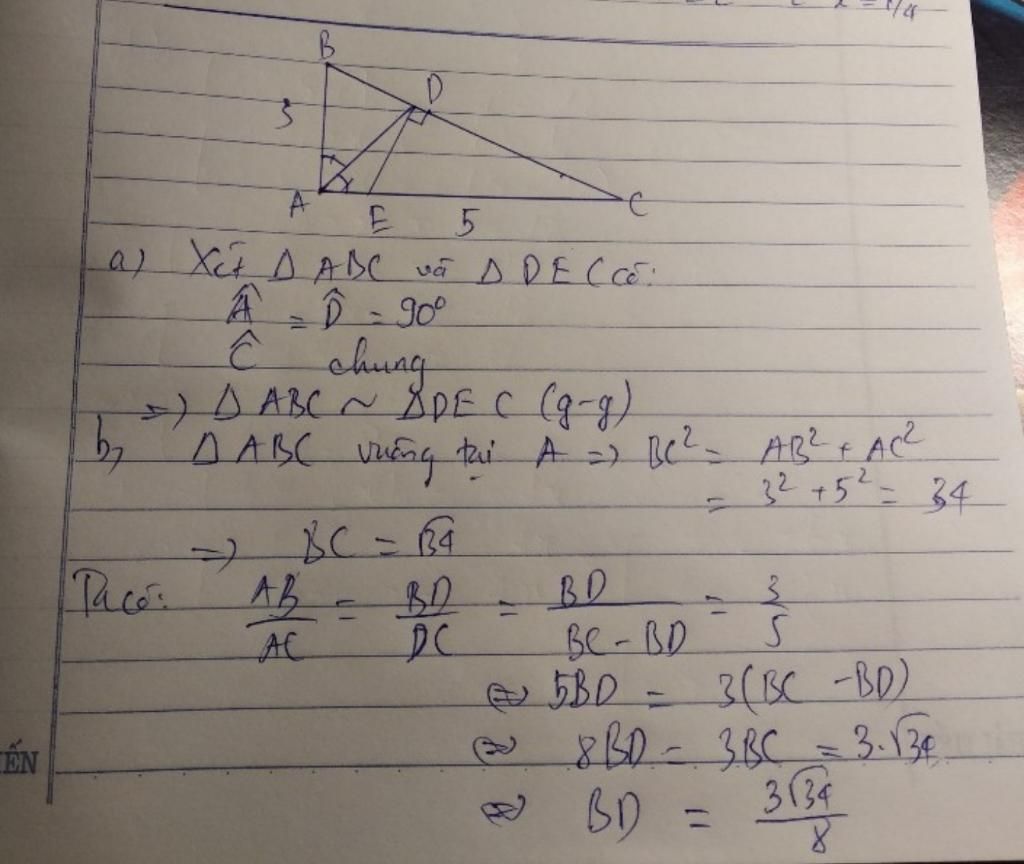 B
D
3
A
E
5
C
a) Xét Δ ABC và Δ DEC có:
Â = D̂ = 90°
Ĉ chung
=> Δ ABC ~ ΔDEC (g-g)
b, Δ ABC vuông tại A => BC² = AB² + AC²
= 3² + 5² = 34
=> BC = √34
Ta có: AB/AC = BD/DC = BD/(BC - BD) = 3/5
⇔ 5BD = 3(BC - BD)
⇔ 8BD = 3BC = 3.√34
⇔ BD = 3√34/8
ẾN